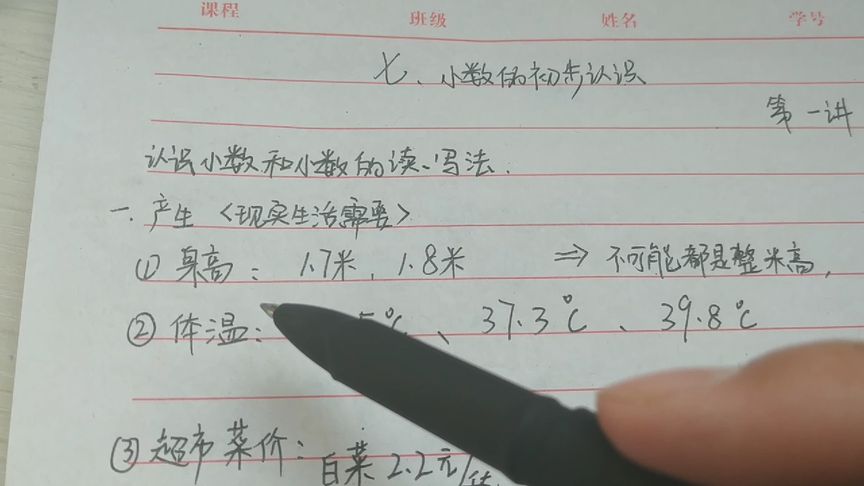 课程 班级 姓名 学号
七、小数的初步认识
第一讲
认识小数和小数的读、写法.
一. 产生 <现实生活需要>
① 身高: 1.7米, 1.8米 ⇒ 不可能都是整米高,
② 体温: 5°C、37.3°C、39.8°C
③ 超市菜价: 白菜 2.2元/